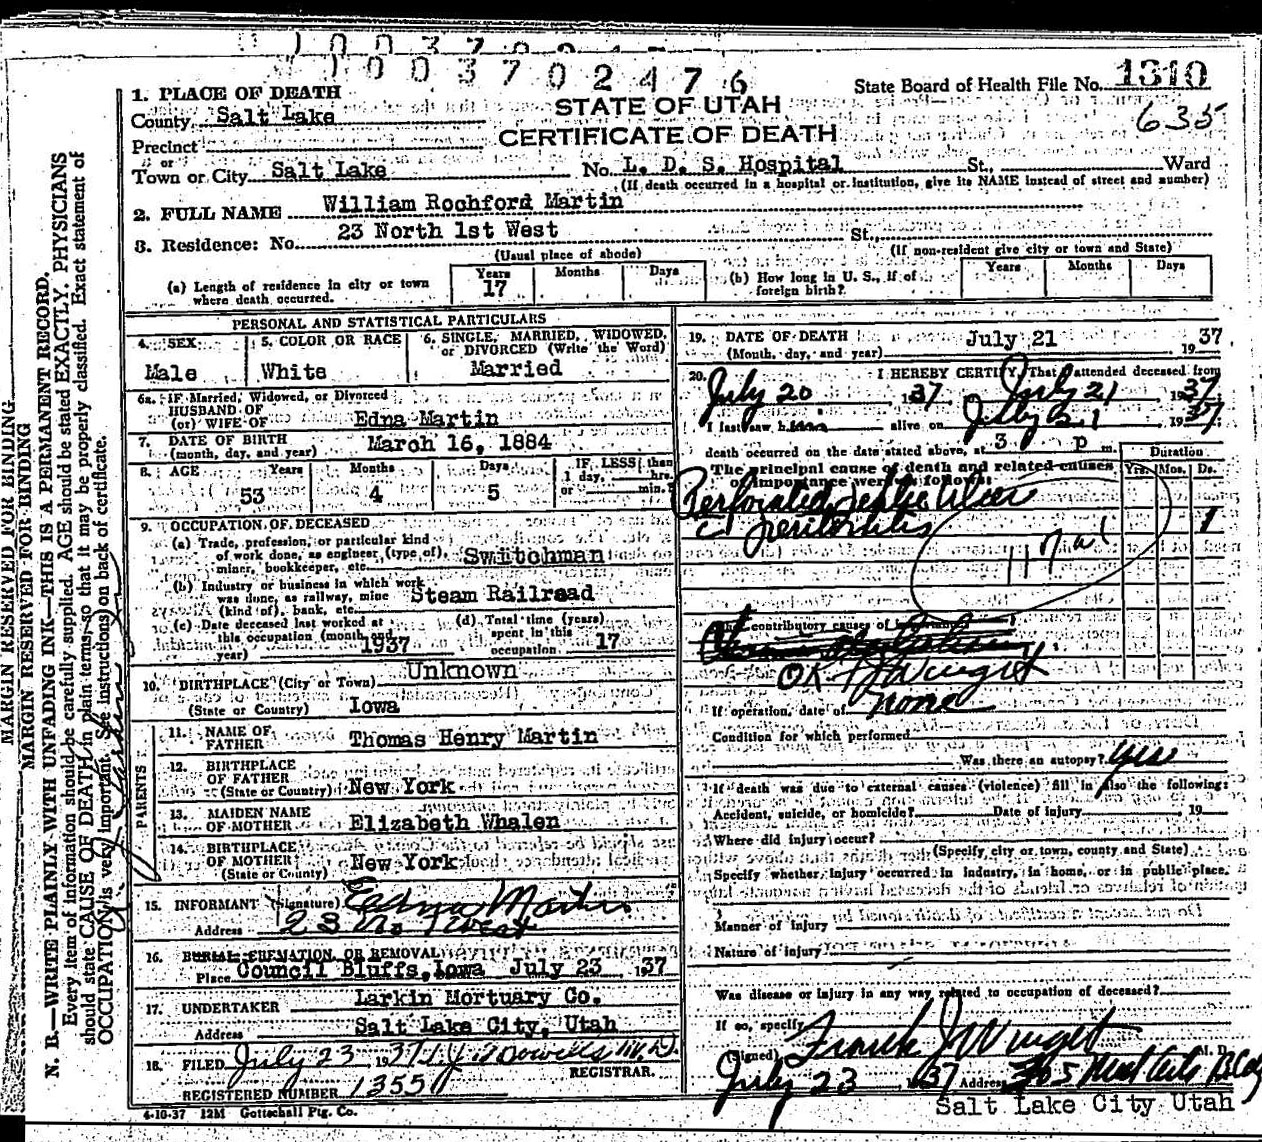 1003702476
State Board of Health File No. 1310
635
1. PLACE OF DEATH
STATE OF UTAH
County Salt Lake
CERTIFICATE OF DEATH
Precinct
or
Town or City Salt Lake No. L. D. S. Hospital St., Ward
(If death occurred in a hospital or institution, give its NAME instead of street and number)
2. FULL NAME William Rochford Martin
3. Residence: No. 23 North 1st West St.,
(Usual place of abode) (If non-resident give city or town and State)
(a) Length of residence in city or town where death occurred. Years 17 Months Days
(b) How long in U. S., if of foreign birth? Years Months Days
PERSONAL AND STATISTICAL PARTICULARS
4. SEX Male
5. COLOR OR RACE White
6. SINGLE, MARRIED, WIDOWED, or DIVORCED (Write the Word) Married
6a. IF Married, Widowed, or Divorced
HUSBAND OF
(or) WIFE OF Edna Martin
7. DATE OF BIRTH
(month, day, and year) March 16, 1884
8. AGE Years 53 Months 4 Days 5 IF LESS than 1 day, hrs. or min.?
9. OCCUPATION OF DECEASED
(a) Trade, profession, or particular kind
of work done, as engineer (type of),
miner, bookkeeper, etc. Switchman
(b) Industry or business in which work
was done, as railway, mine
(kind of), bank, etc. Steam Railroad
(c) Date deceased last worked at
this occupation (month and
year) 1937
(d) Total time (years)
spent in this
occupation 17
10. BIRTHPLACE (City or Town) Unknown
(State or Country) Iowa
PARENTS
11. NAME OF
FATHER Thomas Henry Martin
12. BIRTHPLACE
OF FATHER
(State or Country) New York
13. MAIDEN NAME
OF MOTHER Elizabeth Whalen
14. BIRTHPLACE
OF MOTHER
(State or County) New York
15. INFORMANT (Signature) Edna Martin
Address 23 No 1 West
16. BURIAL, CREMATION, OR REMOVAL
Place Council Bluffs, Iowa July 23 1937
17. UNDERTAKER Larkin Mortuary Co.
Address Salt Lake City, Utah
18. FILED July 23 1937 M.D.
REGISTRAR.
REGISTERED NUMBER 1355
4-10-37 12M Gottschall Ptg. Co.
19. DATE OF DEATH
(Month, day, and year) July 21 1937
20. I HEREBY CERTIFY, That I attended deceased from
July 20 1937 July 21 1937
I last saw him alive on July 21 1937
death occurred on the date stated above, at 3 p m.
The principal cause of death and related causes
of importance were as follows:
Duration
Yrs. Mos. Ds.
Perforated peptic Ulcer
c peritonitis 1
117a
contributory causes of
OK FJ Winget
If operation, date of none
Condition for which performed
Was there an autopsy? yes
If death was due to external causes (violence) fill in also the following:
Accident, suicide, or homicide? Date of injury 19
Where did injury occur?
(Specify city or town, county and State)
Specify whether injury occurred in industry, in home, or in public place.
Manner of injury
Nature of injury
Was disease or injury in any way related to occupation of deceased?
If so, specify
(Signed) Frank J Winget M. D.
July 23 1937 Address 305 Med Arts Bldg
Salt Lake City Utah
MARGIN RESERVED FOR BINDING
MARGIN RESERVED FOR BINDING
N. B.—WRITE PLAINLY WITH UNFADING INK—THIS IS A PERMANENT RECORD.
Every item of information should be carefully supplied. AGE should be stated EXACTLY. PHYSICIANS
should state CAUSE OF DEATH in plain terms, so that it may be properly classified. Exact statement of
OCCUPATION is very important. See instructions on back of certificate.